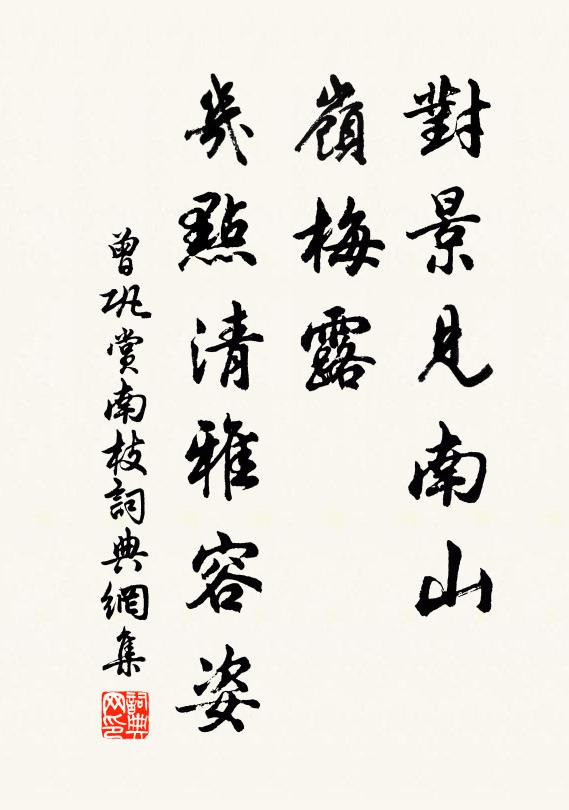 對景見南山
嶺梅露
幾點清雅容姿
曾巩賞南枝詞典網集
詞典網印